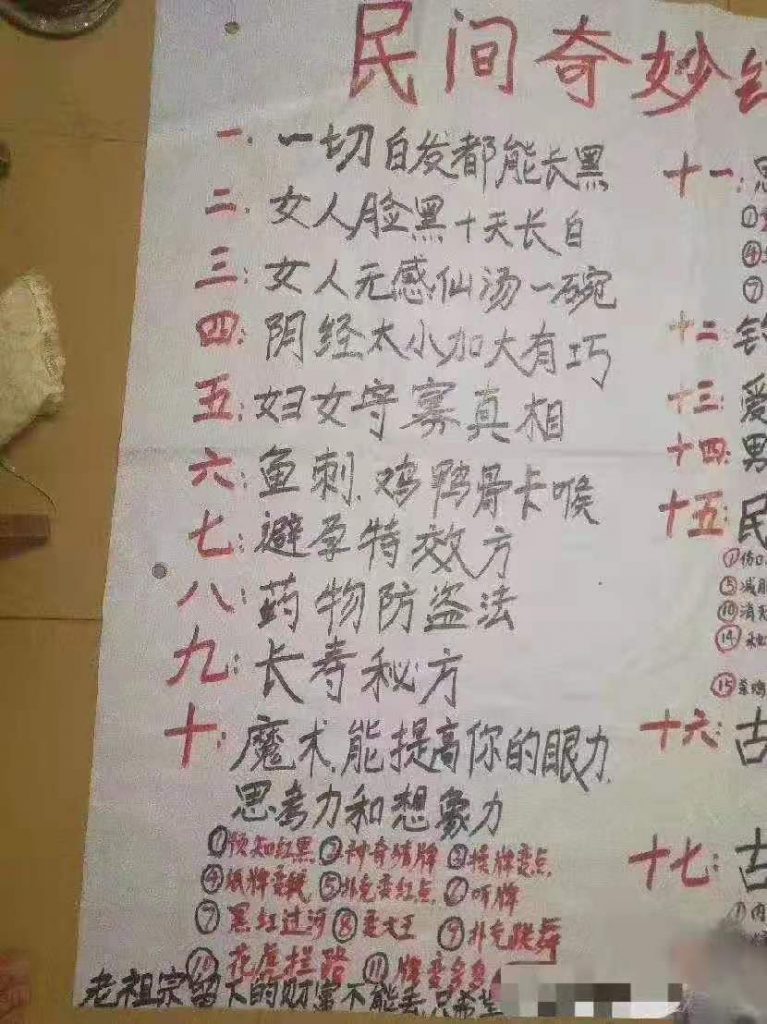 民间奇妙
一. 一切白发都能长黑
二. 女人脸黑十天长白
三: 女人无感仙汤一碗
四: 阴经太小加大有巧
五: 妇女守寡真相
六: 鱼刺.鸡鸭骨卡喉
七: 避孕特效方
八: 药物防盗法
九: 长寿秘方
十: 魔术.能提高你的眼力.
思考力和想象力
①预知红黑②神奇猜牌③换牌变点.
④纸牌变钱⑤扑克变红点.⑥听牌
⑦黑红过河⑧变大王⑨扑克跳舞
⑩花鹿拦路⑪牌变多负
老祖宗留下的财富不能丢.只希望
十一:
①
④
⑦
十二
十三: 爱
十四: 男
十五: 民
①伤口
⑤减肥
⑩消
⑭
⑮
十六: 古
十七: 古
①内